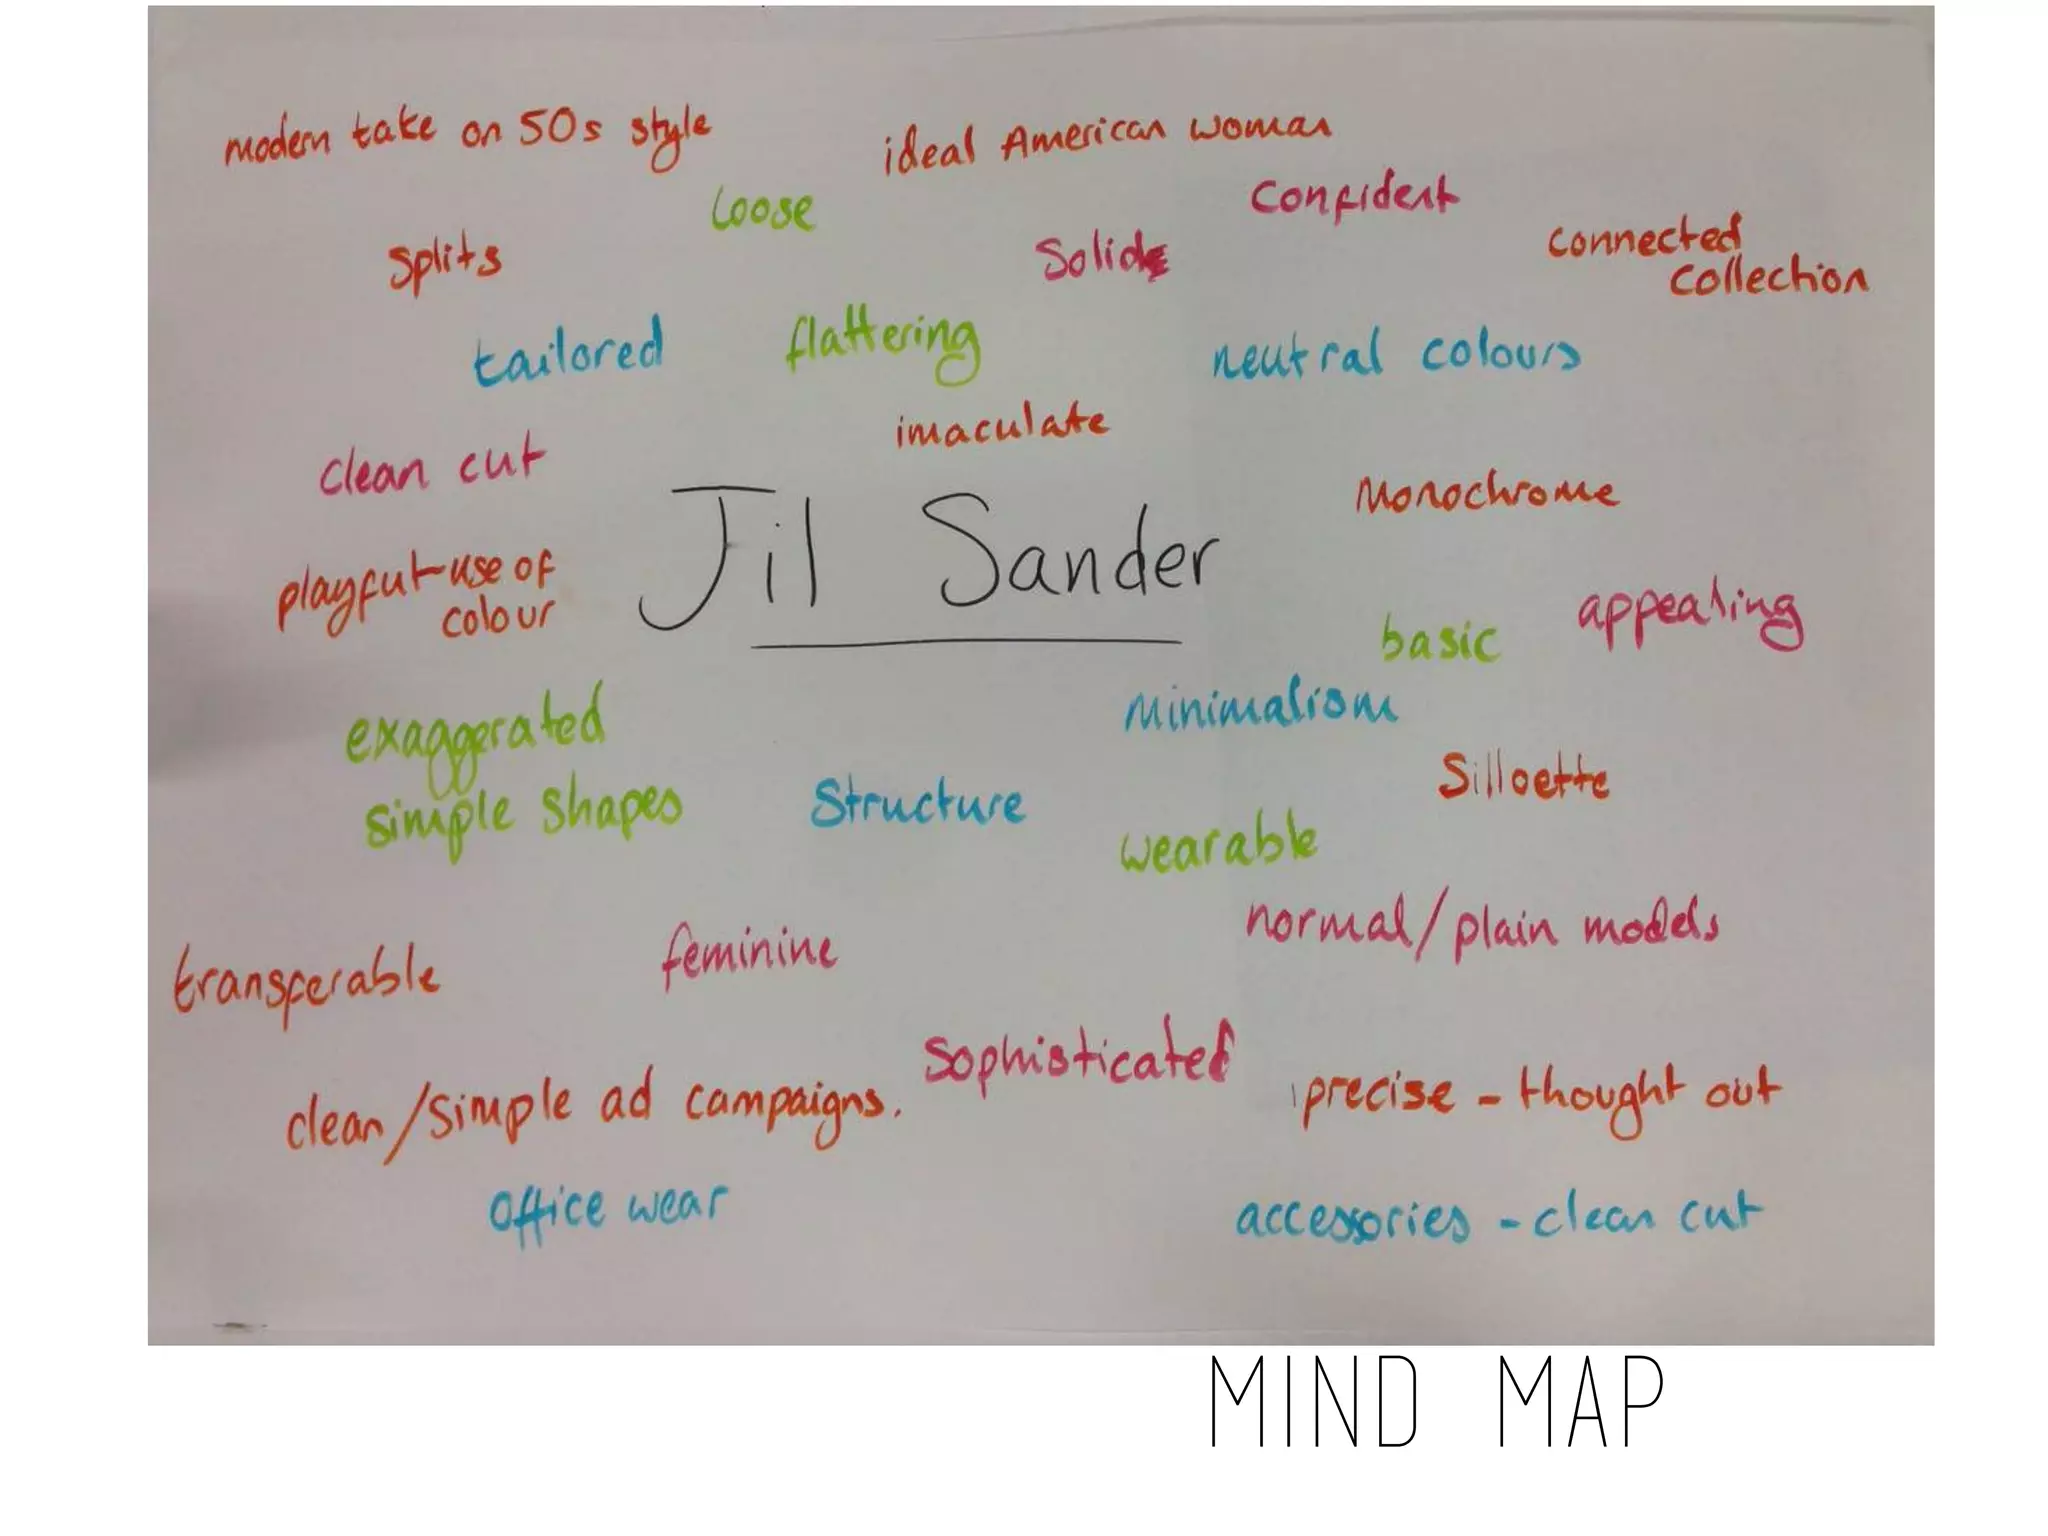 modern take on 50s style
ideal American woman
loose
Confident
splits
Solid
connected
collection
tailored
flattering
neutral colours
imaculate
clean cut
Monochrome
Jil Sander
playful use of
colour
appealing
basic
exaggerated
simple shapes
minimalism
Silloette
Structure
wearable
normal/plain models
transferable
feminine
Sophisticated
clean/simple ad campaigns.
precise - thought out
office wear
accessories - clean cut
MIND MAP